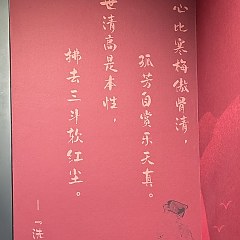 心比寒梅傲骨清，
孤芳自赏乐天真。
世清高是本性，
拂去三斗软红尘。
——“洗